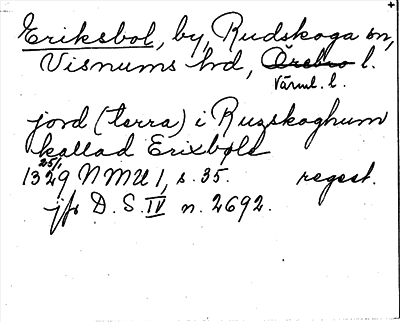 Eriksbol, by, Rudskoga sn,
Visnums hd, Örebro l.
Värml. l.
jord (terra) i Ruzskoghum
kallad Erixbøle
25/1
1329 NMU 1, s. 35. regest.
jfr D. S. IV n. 2692.